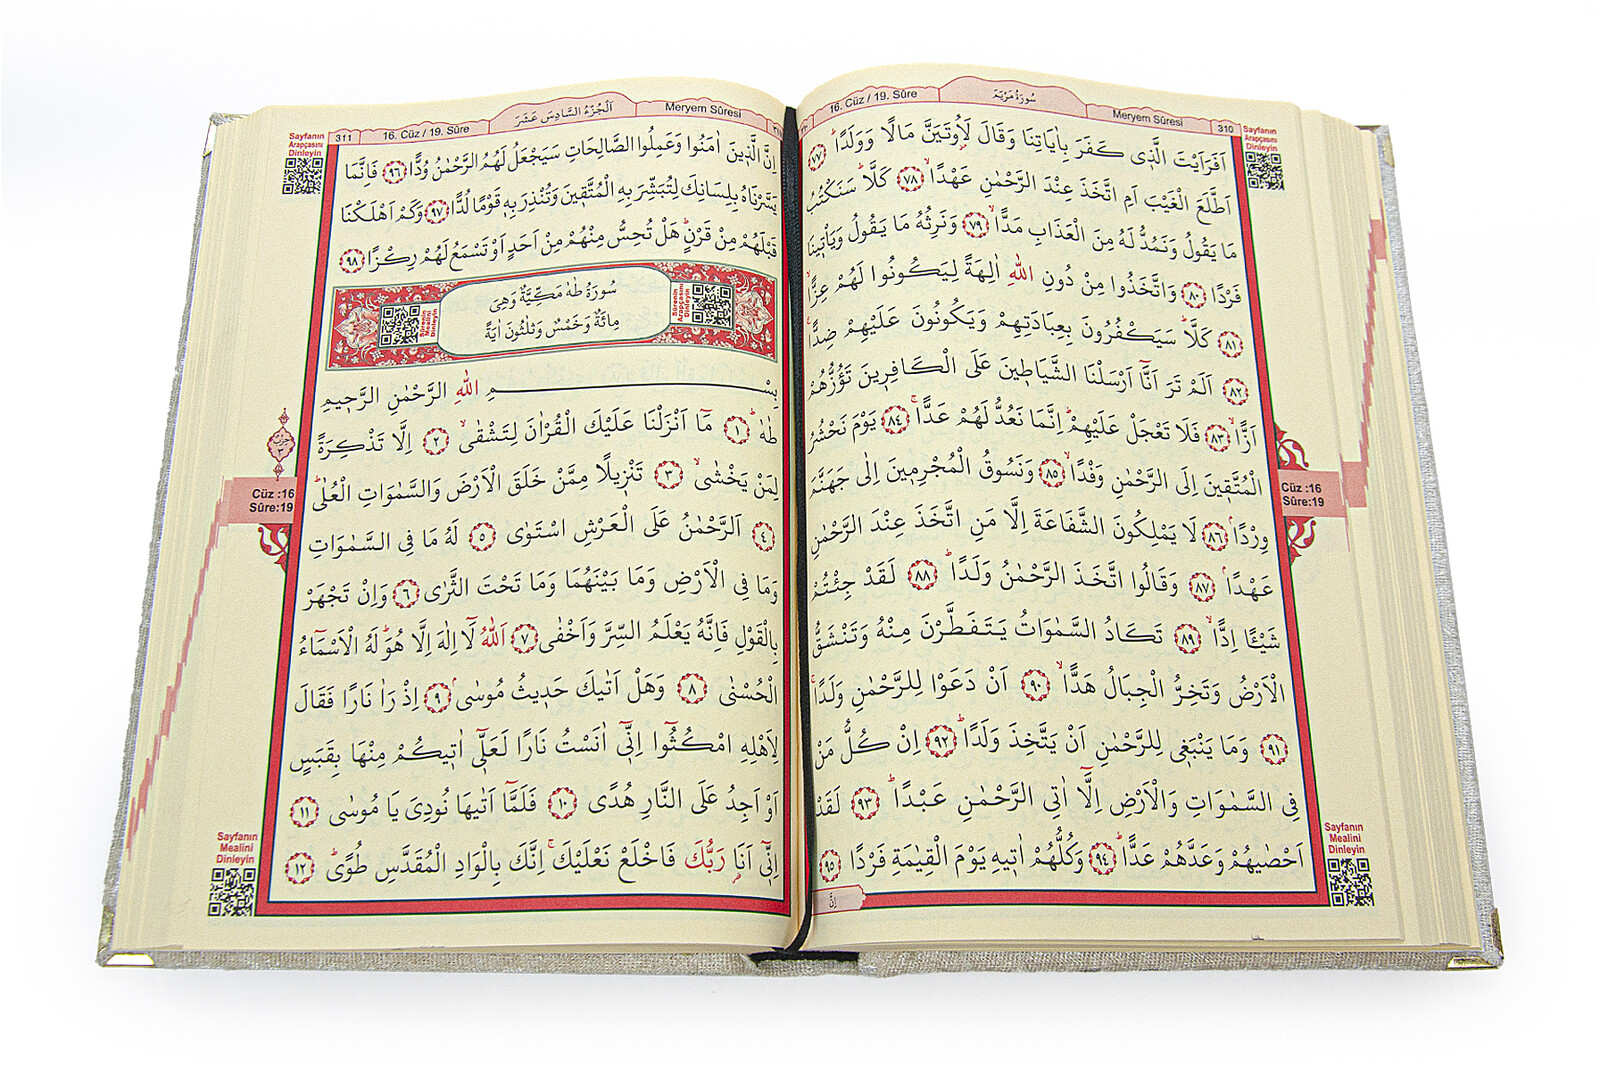 سُورَةُ مَرْيَمَ
16. Cüz / 19. Sûre
Meryem Sûresi
310
Sayfanın
Arapçasını
Dinleyin
اَفَرَاَيْتَ الَّذ۪ي كَفَرَ بِاٰيَاتِنَا وَقَالَ لَاُو۫تَيَنَّ مَالًا وَوَلَدًاۜ ﴿٧٧﴾
اَطَّلَعَ الْغَيْبَ اَمِ اتَّخَذَ عِنْدَ الرَّحْمٰنِ عَهْدًاۙ ﴿٧٨﴾ كَلَّاۜ سَنَكْتُبُ
مَا يَقُولُ وَنَمُدُّ لَهُ مِنَ الْعَذَابِ مَدًّاۙ ﴿٧٩﴾ وَنَرِثُهُ مَا يَقُولُ وَيَأْت۪ينَا
فَرْدًا ﴿٨٠﴾ وَاتَّخَذُوا مِنْ دُونِ اللّٰهِ اٰلِهَةً لِيَكُونُوا لَهُمْ عِزًّاۙ
﴿٨١﴾ كَلَّاۜ سَيَكْفُرُونَ بِعِبَادَتِهِمْ وَيَكُونُونَ عَلَيْهِمْ ضِدًّا۟
﴿٨٢﴾ اَلَمْ تَرَ اَنَّٓا اَرْسَلْنَا الشَّيَاط۪ينَ عَلَى الْكَافِر۪ينَ تَؤُزُّهُمْ
اَزًّاۙ ﴿٨٣﴾ فَلَا تَعْجَلْ عَلَيْهِمْۜ اِنَّمَا نَعُدُّ لَهُمْ عَدًّاۚ ﴿٨٤﴾ يَوْمَ نَحْشُرُ
الْمُتَّق۪ينَ اِلَى الرَّحْمٰنِ وَفْدًاۙ ﴿٨٥﴾ وَنَسُوقُ الْمُجْرِم۪ينَ اِلٰى جَهَنَّمَ
وِرْدًاۢ ﴿٨٦﴾ لَا يَمْلِكُونَ الشَّفَاعَةَ اِلَّا مَنِ اتَّخَذَ عِنْدَ الرَّحْمٰنِ
عَهْدًاۢ ﴿٨٧﴾ وَقَالُوا اتَّخَذَ الرَّحْمٰنُ وَلَدًاۜ ﴿٨٨﴾ لَقَدْ جِئْتُمْ
شَيْـًٔا اِدًّاۙ ﴿٨٩﴾ تَكَادُ السَّمٰوَاتُ يَتَفَطَّرْنَ مِنْهُ وَتَنْشَقُّ
الْاَرْضُ وَتَخِرُّ الْجِبَالُ هَدًّاۙ ﴿٩٠﴾ اَنْ دَعَوْا لِلرَّحْمٰنِ وَلَدًاۚ
﴿٩١﴾ وَمَا يَنْبَغ۪ي لِلرَّحْمٰنِ اَنْ يَتَّخِذَ وَلَدًاۜ ﴿٩٢﴾ اِنْ كُلُّ مَنْ
فِي السَّمٰوَاتِ وَالْاَرْضِ اِلَّٓا اٰتِي الرَّحْمٰنِ عَبْدًاۜ ﴿٩٣﴾ لَقَدْ
اَحْصٰيهُمْ وَعَدَّهُمْ عَدًّاۜ ﴿٩٤﴾ وَكُلُّهُمْ اٰت۪يهِ يَوْمَ الْقِيٰمَةِ فَرْدًا ﴿٩٥﴾
اِنَّ
Cüz :16
Sûre:19
Sayfanın
Mealini
Dinleyin
311
16. Cüz / 19. Sûre
اَلْجُزْءُ السَّادِسَ عَشَرَ
Meryem Sûresi
Sayfanın
Arapçasını
Dinleyin
اِنَّ الَّذ۪ينَ اٰمَنُوا وَعَمِلُوا الصَّالِحَاتِ سَيَجْعَلُ لَهُمُ الرَّحْمٰنُ وُدًّا ﴿٩٦﴾ فَاِنَّمَا
يَسَّرْنَاهُ بِلِسَانِكَ لِتُبَشِّرَ بِهِ الْمُتَّق۪ينَ وَتُنْذِرَ بِه۪ قَوْمًا لُدًّا ﴿٩٧﴾ وَكَمْ اَهْلَكْنَا
قَبْلَهُمْ مِنْ قَرْنٍۜ هَلْ تُحِسُّ مِنْهُمْ مِنْ اَحَدٍ اَوْ تَسْمَعُ لَهُمْ رِكْزًا ﴿٩٨﴾
سُورَةُ طٰهٰ مَكِّيَّةٌ وَهِيَ
مِائَةٌ وَخَمْسٌ وَثَلٰثُونَ اٰيَةً
Sûrenin
Arapçasını
Dinleyin
Sûrenin
Mealini
Dinleyin
بِسْمِ اللّٰهِ الرَّحْمٰنِ الرَّح۪يمِ
طٰهٰۜ ﴿١﴾ مَٓا اَنْزَلْنَا عَلَيْكَ الْقُرْاٰنَ لِتَشْقٰىۙ ﴿٢﴾ اِلَّا تَذْكِرَةً
لِمَنْ يَخْشٰىۙ ﴿٣﴾ تَنْز۪يلًا مِمَّنْ خَلَقَ الْاَرْضَ وَالسَّمٰوَاتِ الْعُلٰىۜ
﴿٤﴾ اَلرَّحْمٰنُ عَلَى الْعَرْشِ اسْتَوٰى ﴿٥﴾ لَهُ مَا فِي السَّمٰوَاتِ
وَمَا فِي الْاَرْضِ وَمَا بَيْنَهُمَا وَمَا تَحْتَ الثَّرٰى ﴿٦﴾ وَاِنْ تَجْهَرْ
بِالْقَوْلِ فَاِنَّهُ يَعْلَمُ السِّرَّ وَاَخْفٰى ﴿٧﴾ اَللّٰهُ لَٓا اِلٰهَ اِلَّا هُوَۜ لَهُ الْاَسْمَٓاءُ
الْحُسْنٰى ﴿٨﴾ وَهَلْ اَتٰيكَ حَد۪يثُ مُوسٰىۢ ﴿٩﴾ اِذْ رَاٰ نَارًا فَقَالَ
لِاَهْلِهِ امْكُـثُٓوا اِنّ۪ٓي اٰنَسْتُ نَارًا لَعَلّ۪ٓي اٰت۪يكُمْ مِنْهَا بِقَبَسٍ
اَوْ اَجِدُ عَلَى النَّارِ هُدًى ﴿١٠﴾ فَلَمَّٓا اَتٰيهَا نُودِيَ يَا مُوسٰى ﴿١١﴾
اِنّ۪ٓي اَنَا۬ رَبُّكَ فَاخْلَعْ نَعْلَيْكَۚ اِنَّكَ بِالْوَادِ الْمُقَدَّسِ طُوًىۜ ﴿١٢﴾
Cüz :16
Sûre:19
Sayfanın
Mealini
Dinleyin